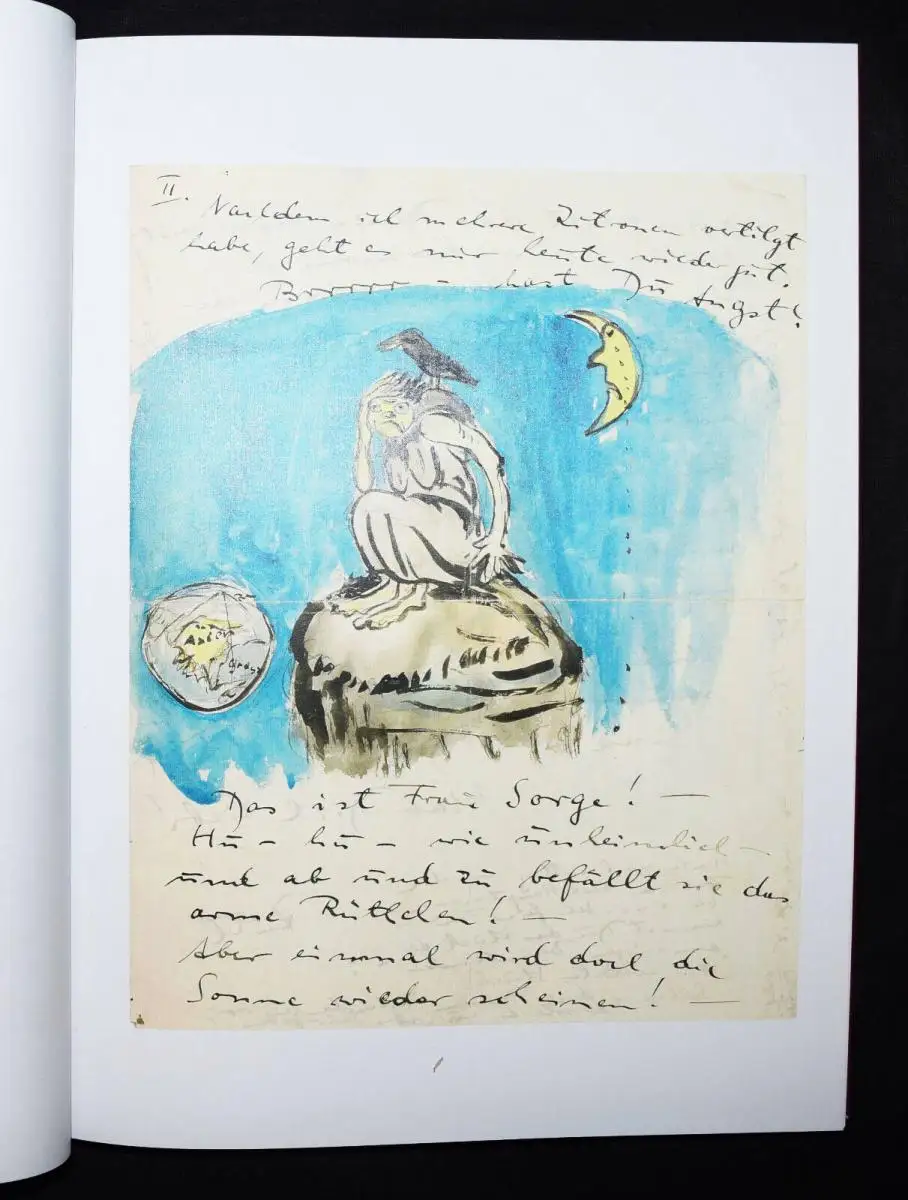 II. Nachdem ich mehrere Zitronen vertilgt
habe, geht es mir heute wieder gut.
Brrrrr – hast Du Angst!
Asien
Das ist Frau Sorge! —
Hu – hu – wie unheimlich –
und ab und zu befällt sie das
arme Rüthchen! —
Aber einmal wird doch die
Sonne wieder scheinen! —